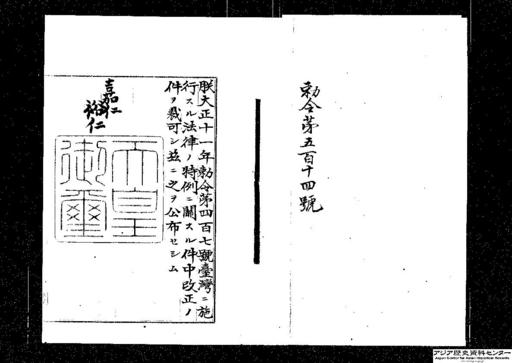 勅令第五百十四號
朕大正十一年勅令第四百七號臺灣ニ施
行スル法律ノ特例ニ關スル件中改正ノ
件ヲ裁可シ茲ニ之ヲ公布セシム
嘉仁
裕仁
天皇
御璽
アジア歴史資料センター
Japan Center for Asian Historical Records